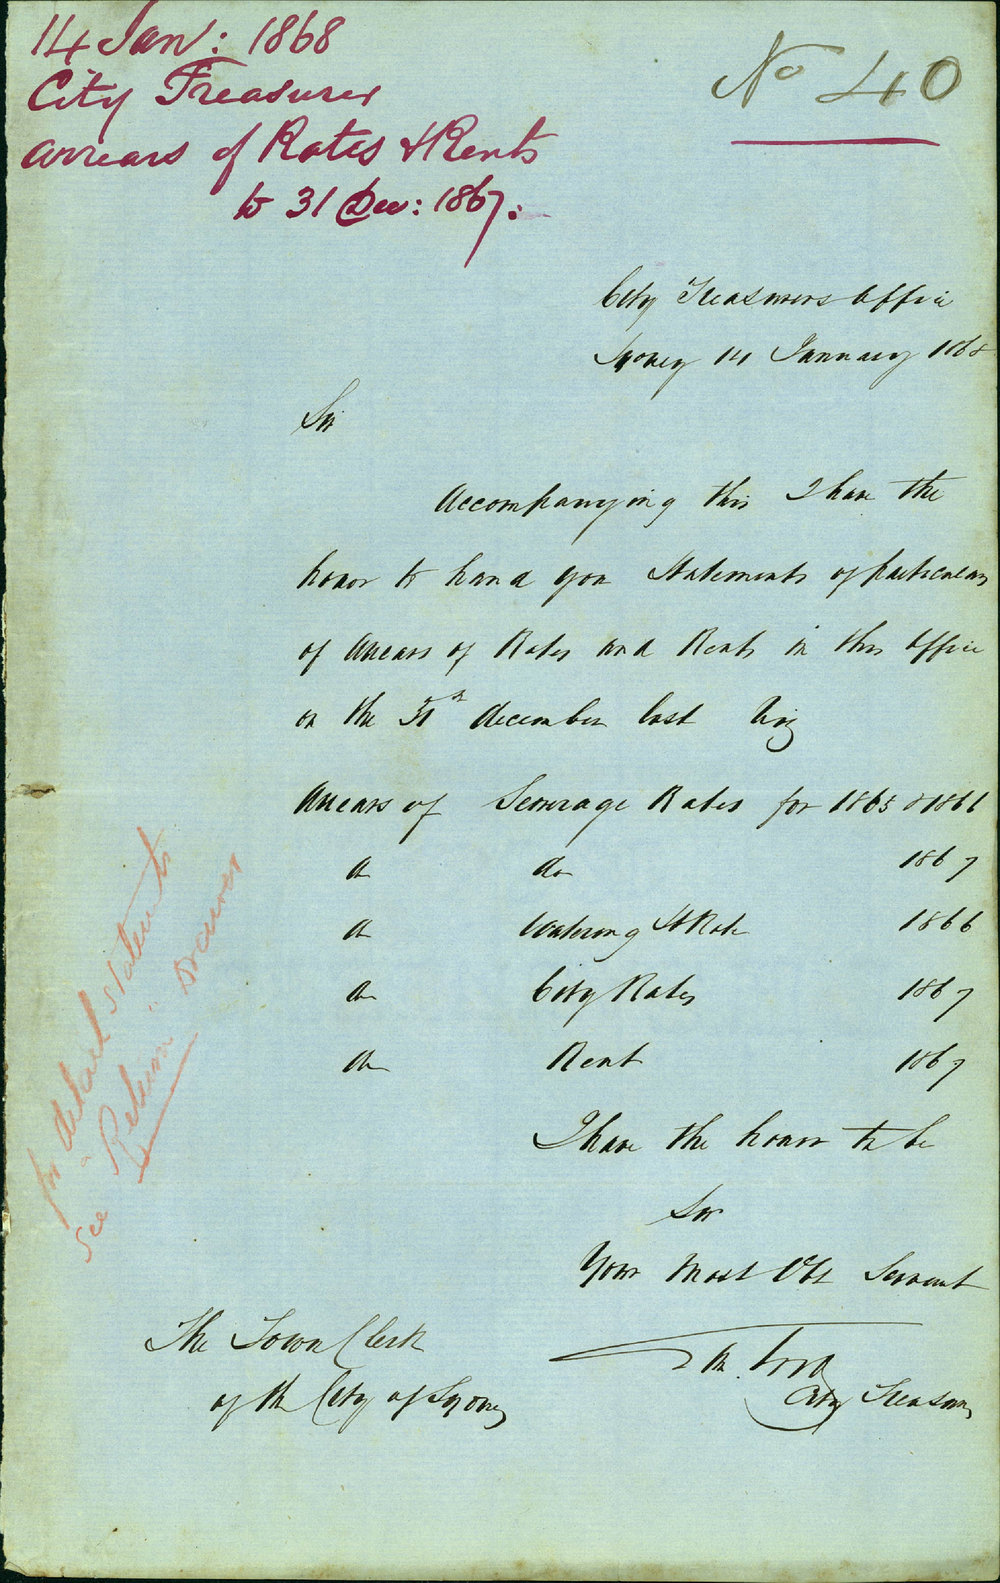 14 Jan: 1868
City Treasurer
arrears of Rates & Rents
to 31 Dec: 1867:
No 40
City Treasurers Office
Sydney 14 January 1868
Sir
Accompanying this I have the
honor to hand you Statements of particulars
of Arrears of Rates and Rents in this Office
on the 31st december last Viz
Arrears of Sewerage Rates for 1865 & 1866
do do 1867
do Watering St Rate 1866
do City Rates 1867
do Rent 1867
I have the honor to be
Sir
Your Most Obt Servant
City Treasurer
The Town Clerk
of the City of Sydney
for detail statements
see Return Drawer